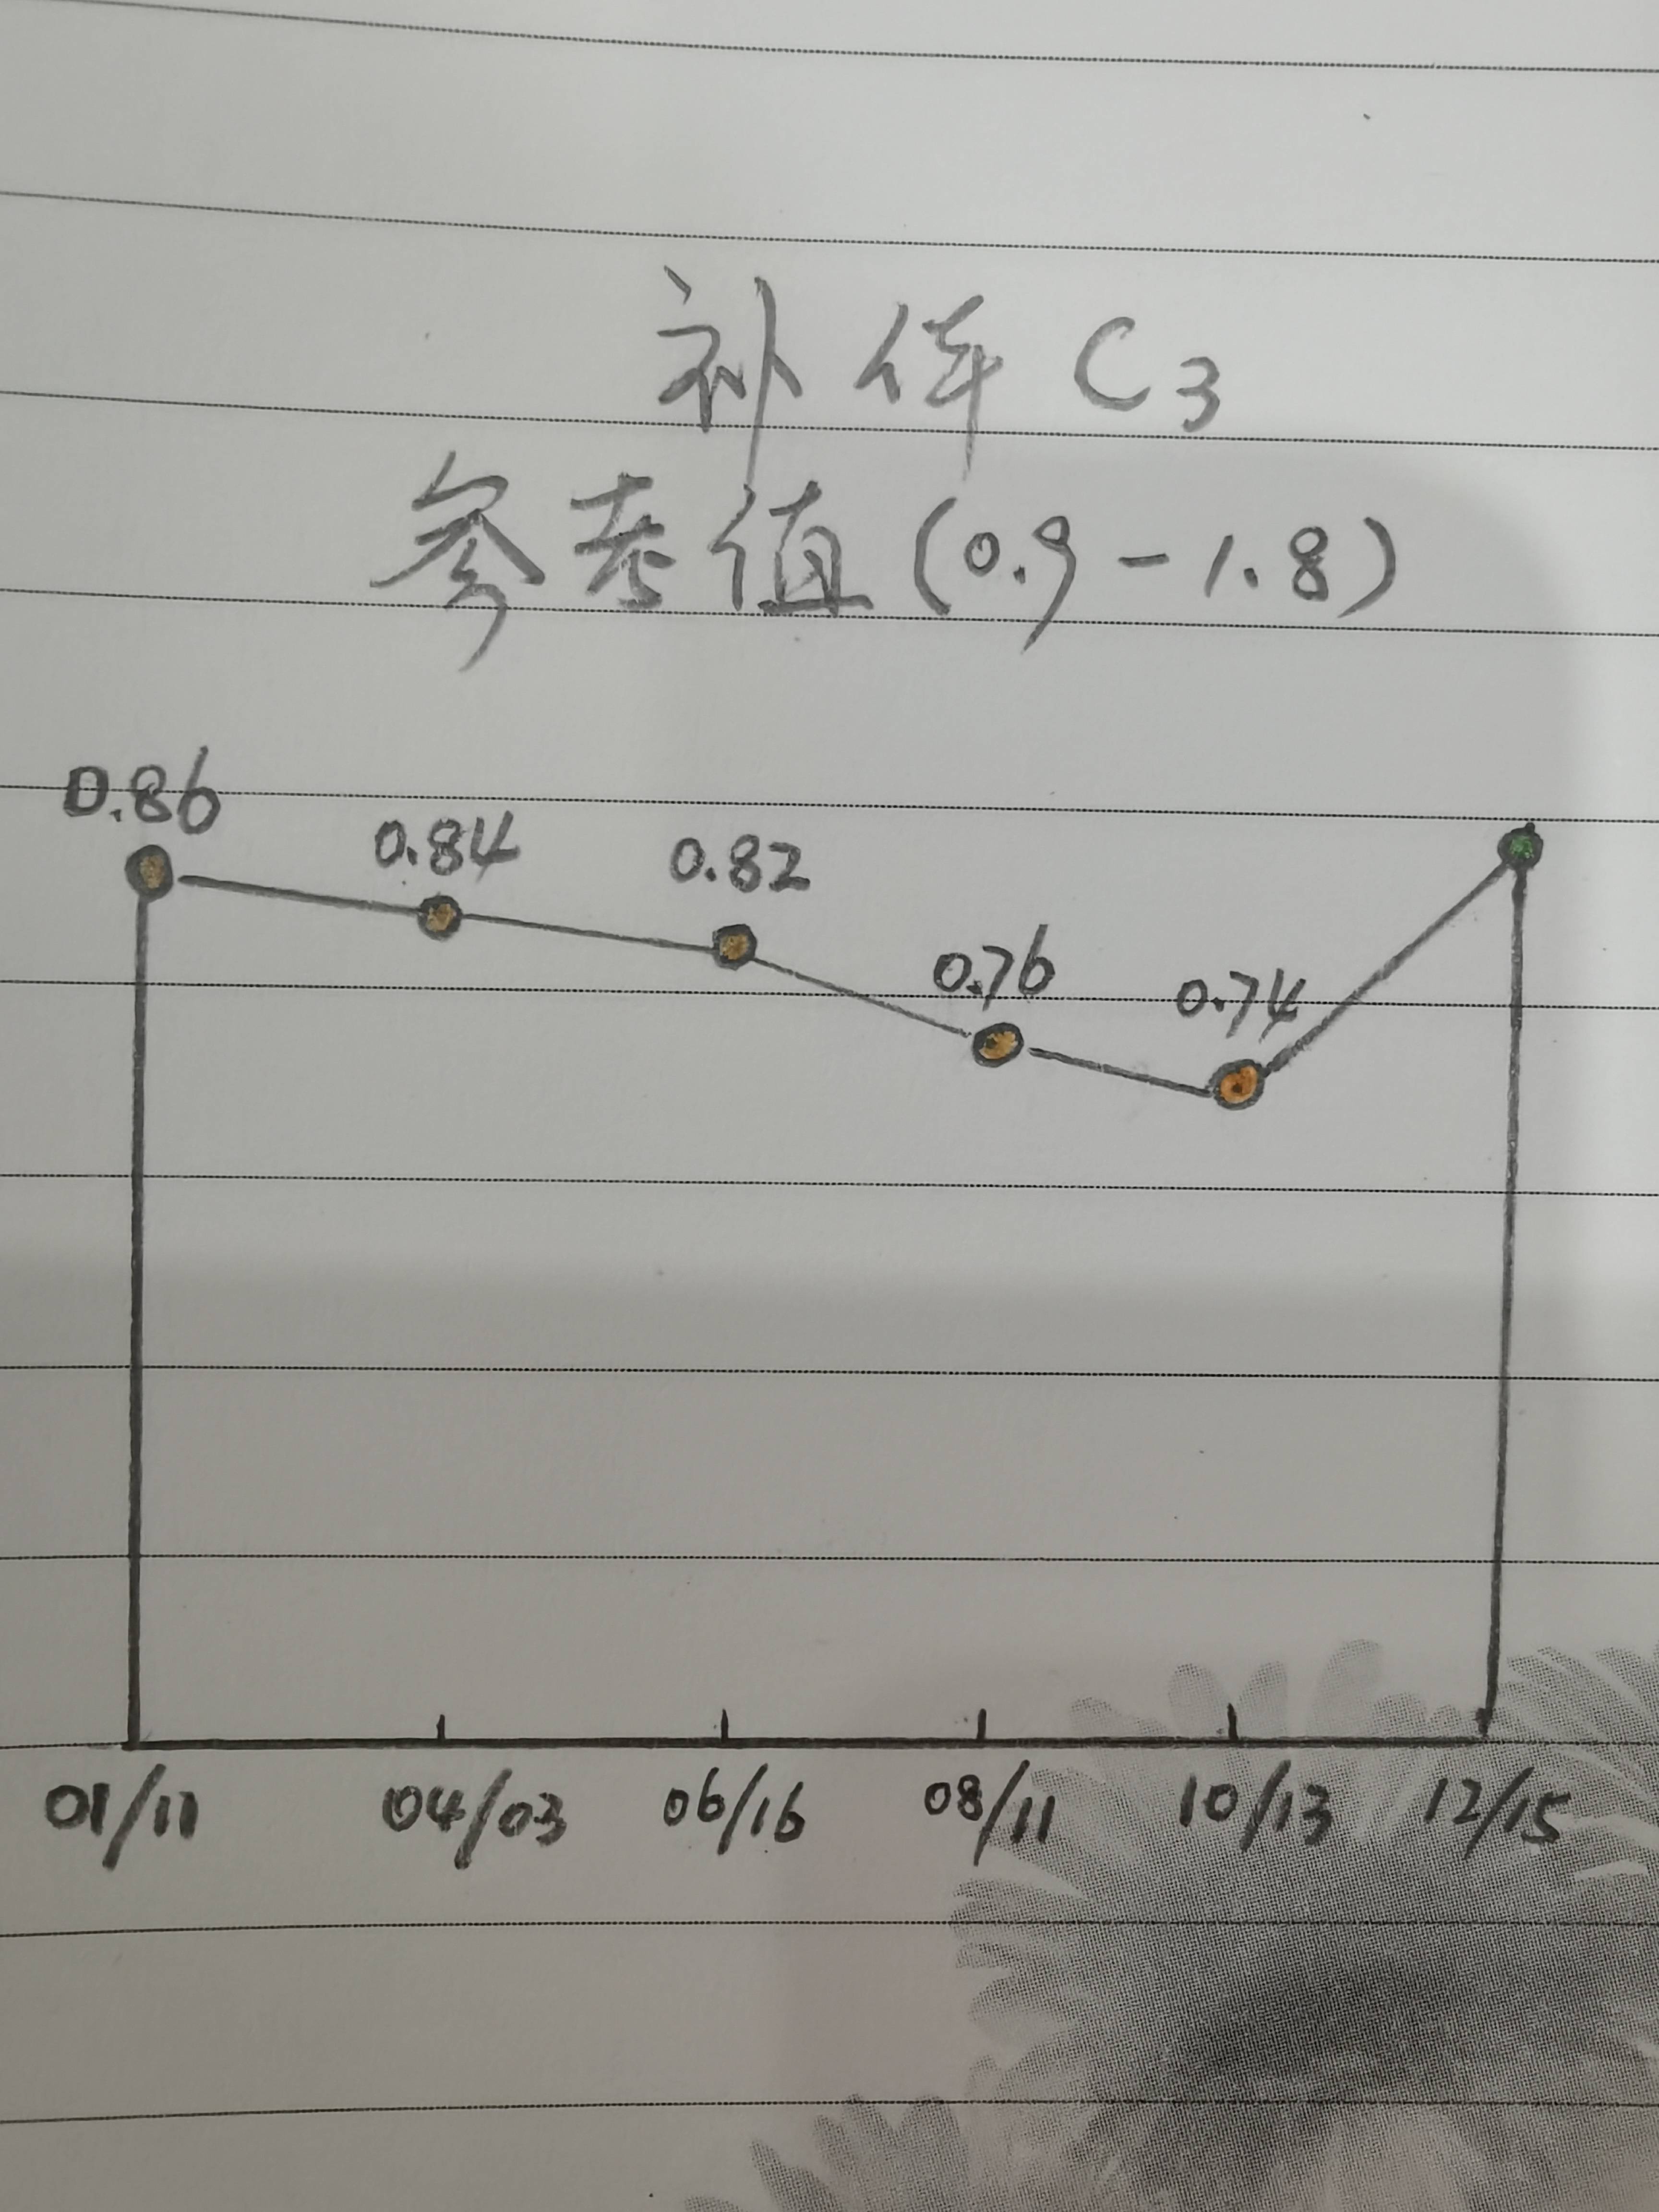 补体 C3
参考值(0.9-1.8)
0.86
0.84
0.82
0.76
0.74
01/11
04/03
06/16
08/11
10/13
12/15